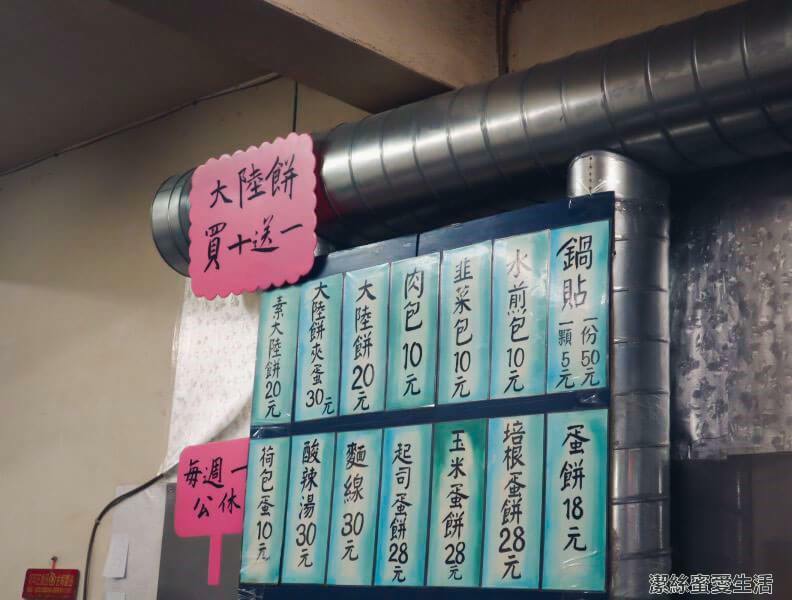 大陸餅
買十送一
鍋貼
一份50元
一顆5元
水煎包10元
韭菜包10元
肉包10元
大陸餅20元
大陸餅夾蛋30元
素大陸餅20元
蛋餅18元
培根蛋餅28元
玉米蛋餅28元
起司蛋餅28元
麵線30元
酸辣湯30元
荷包蛋10元
每週一
公休
潔絲蜜愛生活